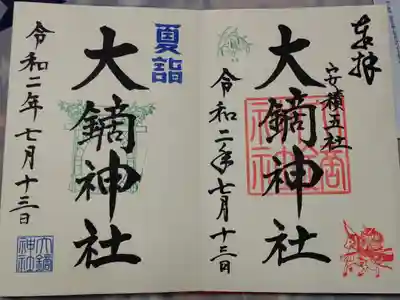 奉拝
安積五社
大鏑神社
令和二年七月十三日
夏詣
大鏑神社
令和二年七月十三日
大鏑
神社